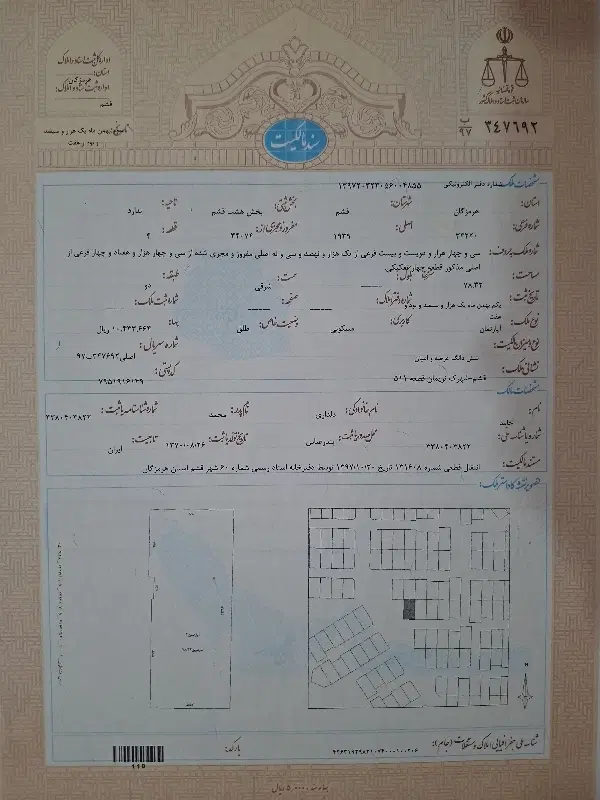 اداره کل ثبت اسناد و املاک
استان: هرمزگان
اداره ثبت اسناد و املاک:
قشم
تاریخ: بهمن ماه یک هزار و سیصد
و نود و هفت
قوه قضائیه
سازمان ثبت اسناد و املاک کشور
۳۴۷۶۹۲ ب ۹۷
سند مالکیت
مشخصات ملک
شماره دفتر الکترونیکی: ۱۳۹۷۲۰۳۲۳۰۵۶۰۰۴۸۵۵
استان: هرمزگان شهرستان: قشم بخش ثبتی: بخش هشت قشم ناحیه: ندارد
شماره فرعی: اصلی: ۱۹۳۹ مفروز و مجزی از: ۳۴۰۷۶ قطعه: ۴
شماره ملک به حروف: سی و چهار هزار و دویست و بیست فرعی از یک هزار و نهصد و سی و نه اصلی مفروز و مجزی شده از سی و چهار هزار و هفتاد و چهار فرعی از
اصلی مذکور قطعه چهار تفکیکی
مساحت: ۷۸.۴۲ سمت: شرقی طبقه: دو
تاریخ ثبت: یکم بهمن ماه یک هزار و سیصد و نود و هفت شماره دفتر املاک: صفحه: شماره ثبت ملک:
نوع ملک: آپارتمان کاربری: مسکونی وضعیت خاص: طلق بهاء: ۱۰,۴۳۳,۶۶۴ ریال
نوع و میزان مالکیت: شش دانگ عرصه و اعیان شماره سریال: اصلی ۳۴۷۶۹۲ ب ۹۷
نشانی ملک: قشم-شهرک نریمان قطعه ۵۱۱ کد پستی: ۷۹۵۱۹۱۶۱۴۹
مشخصات مالک
نام: حامد نام خانوادگی: دلداری نام پدر: محمد شماره شناسنامه یا ثبت: ۳۳۸۰۴۰۳۸۲۲
شماره یا شناسه ملی: ۳۳۸۰۴۰۳۸۲۲ محل صدور یا ثبت: بندرعباس تاریخ تولد یا ثبت: ۱۳۷۰/۰۸/۲۶ تابعیت: ایران
مستند مالکیت: انتقال قطعی شماره ۱۳۱۶۰۸ تاریخ ۱۳۹۷/۱۰/۲۰ توسط دفترخانه اسناد رسمی شماره ۶۰ شهر قشم استان هرمزگان
تصویر نقشه کاداستر ملک:
شناسه ملی جغرافیایی املاک و مستغلات (جام):
بارکد:
119